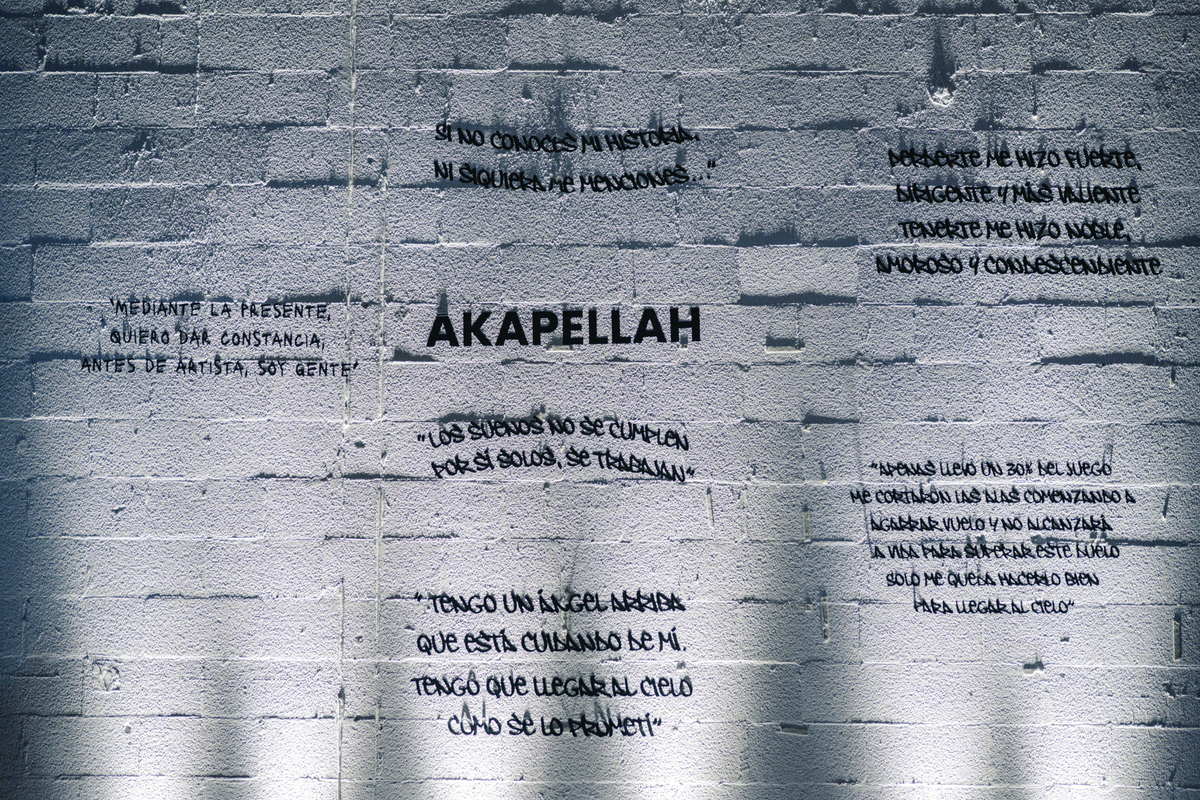 SI NO CONOCES MI HISTORIA,
NI SIQUIERA ME MENCIONES..."
PERDERTE ME HIZO FUERTE,
DIRIGENTE Y MÁS VALIENTE
TENERTE ME HIZO NOBLE,
AMOROSO Y CONDESCENDIENTE
"MEDIANTE LA PRESENTE,
QUIERO DAR CONSTANCIA,
ANTES DE ARTISTA, SOY GENTE"
AKAPELLAH
"LOS SUEÑOS NO SE CUMPLEN
POR SÍ SOLOS, SE TRABAJAN"
"APENAS LLEVO UN 30% DEL JUEGO
ME CORTARÓN LAS ALAS COMENZANDO A
AGARRAR VUELO Y NO ALCANZARÁ
LA VIDA PARA SUPERAR ESTE DUELO
SOLO ME QUEDA HACERLO BIEN
PARA LLEGAR AL CIELO"
"TENGO UN ÁNGEL ARRIBA
QUE ESTÁ CUIDANDO DE MÍ.
TENGO QUE LLEGAR AL CIELO
COMO SE LO PROMETÍ"